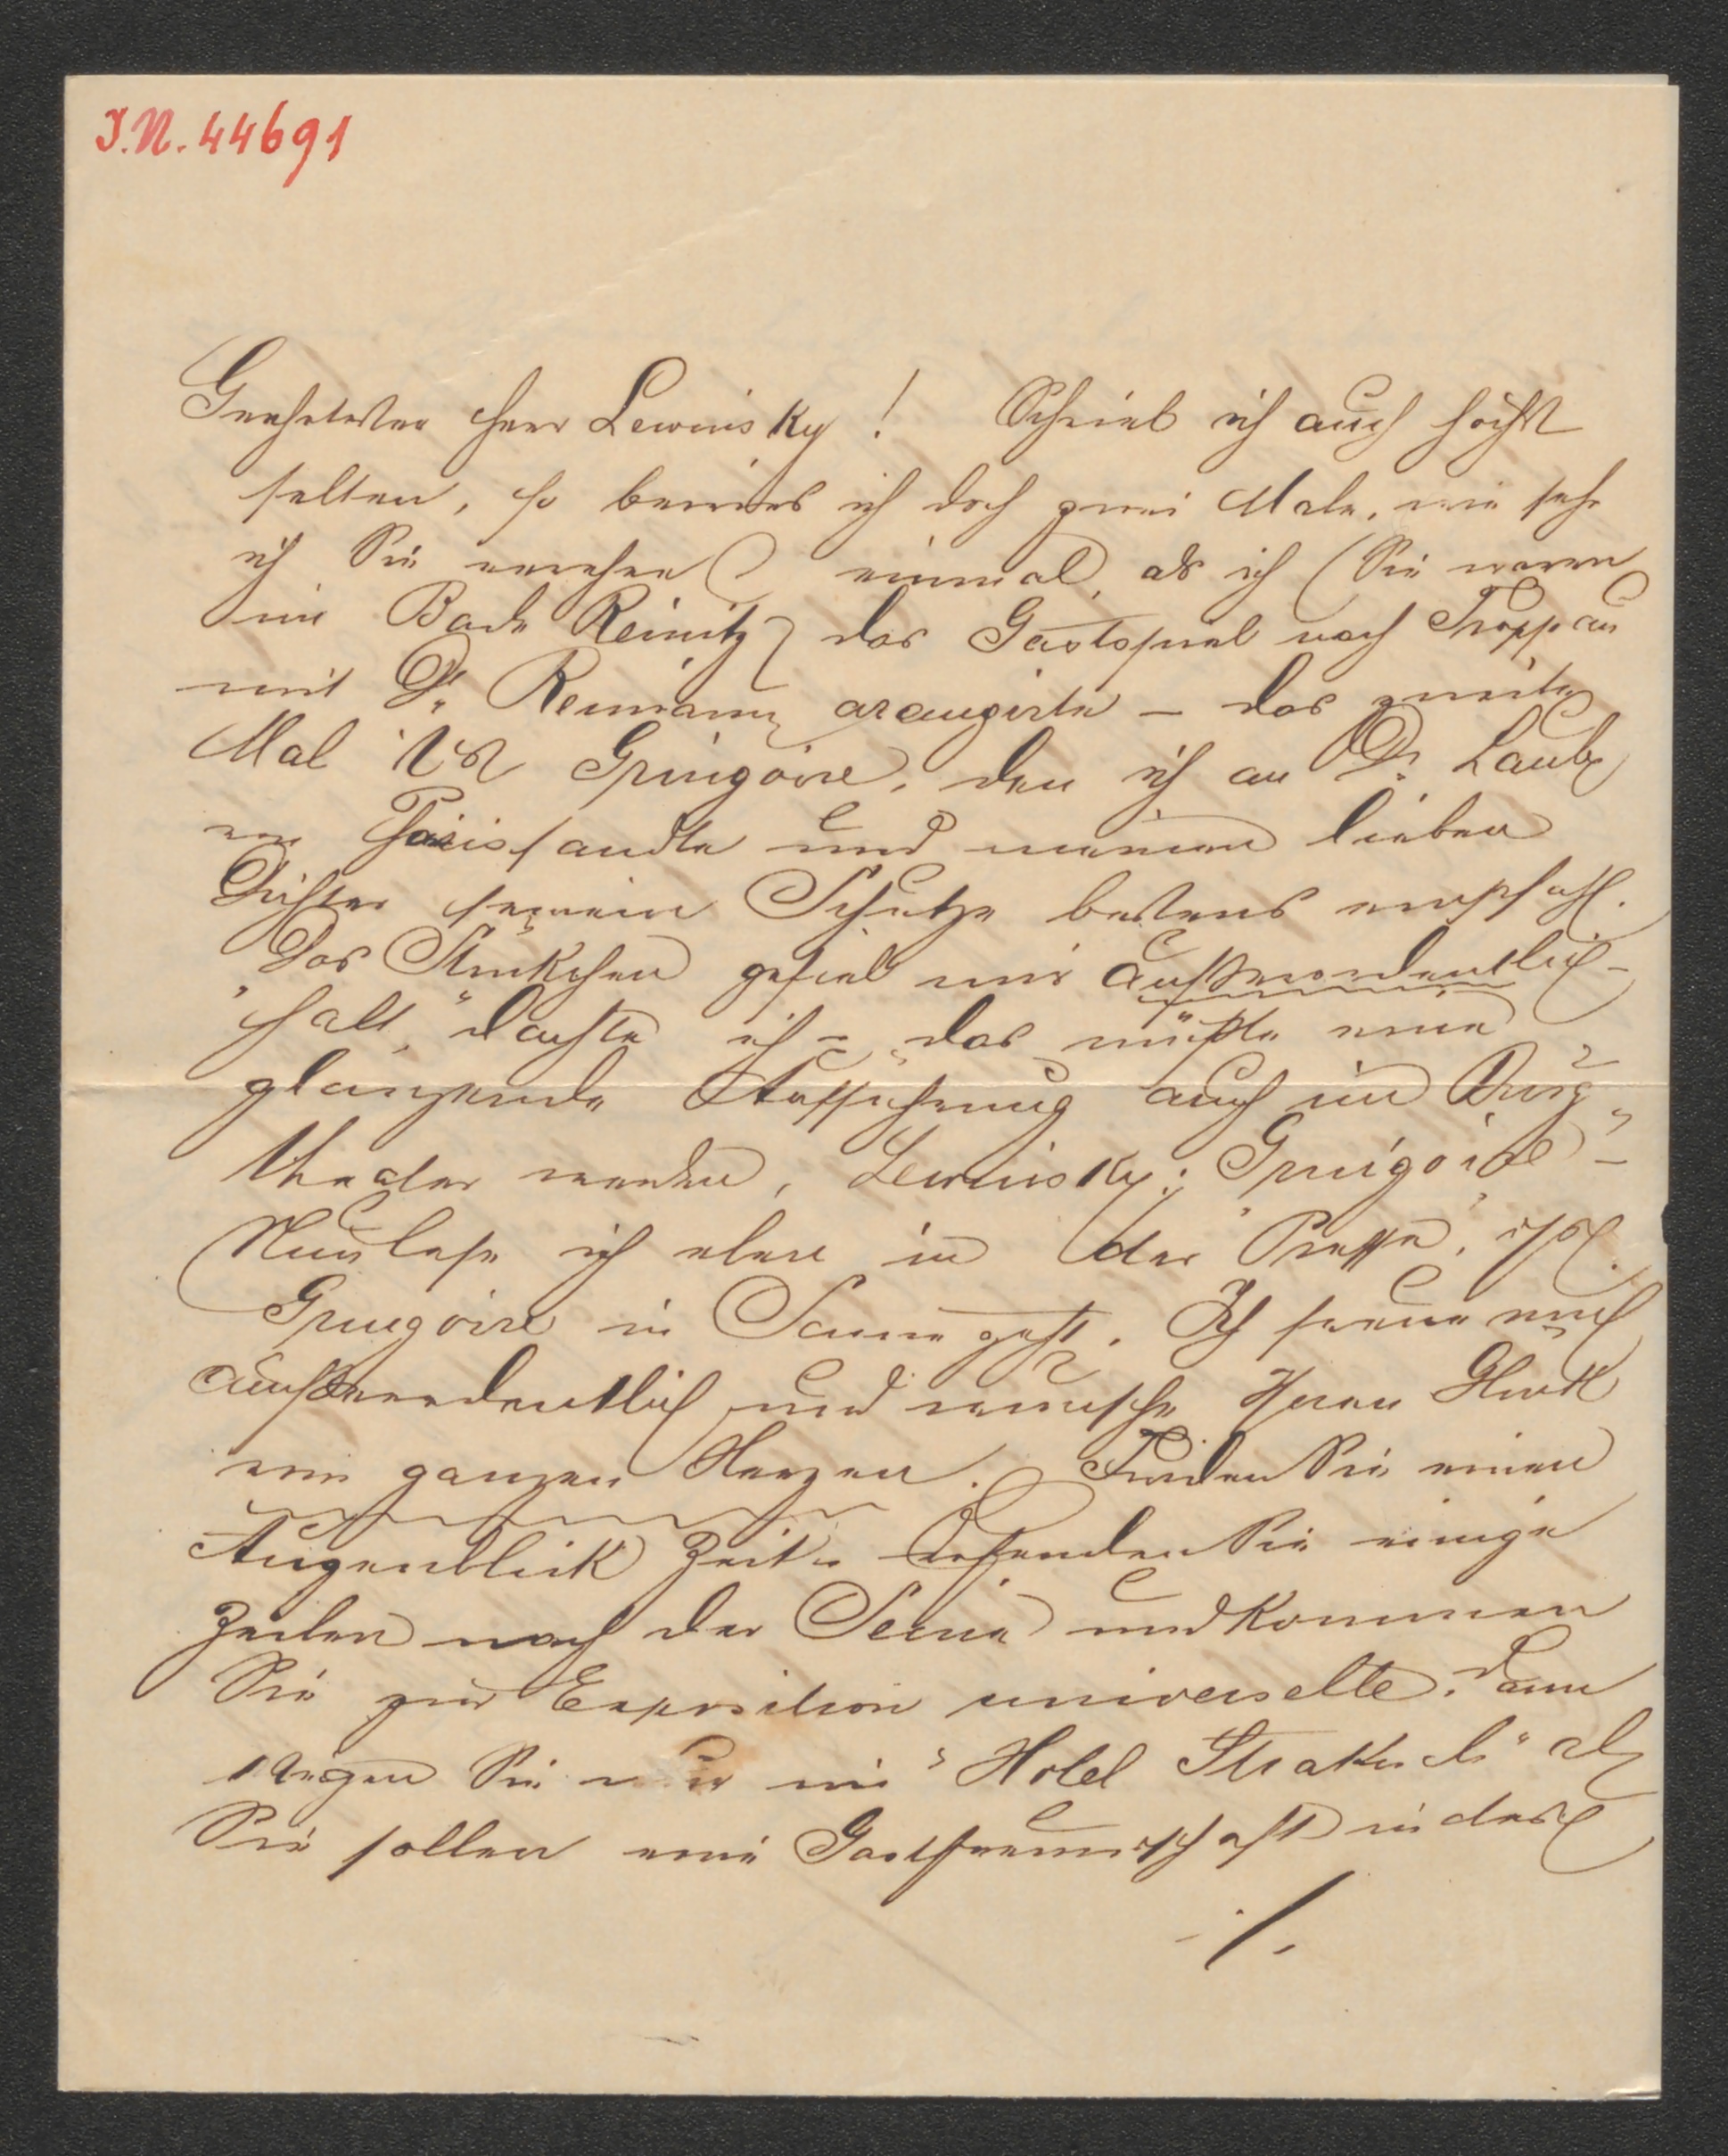 I.N. 44691
Geehrtester Herr Lewinsky! Schrieb ich auch höchst
selten, so bewies ich doch zwei Male, wie sehr
ich Sie verehre einmal, als ich (Sie waren
im Bade Reinitz) das Gastspiel nach Troppau
mit Dr Reimann arangirte – das zweite
Mal ist Gringoire, den ich an Dr. Laube
von Paris sandte und meinen lieben
Dichter seinem Schutze bestens empfahl.
Das Stückchen gefiel mir außerordentlich –
"halt," dachte ich – "das müßte eine
glänzende Aufführung auch im Burg
theater werden, Lewinsky: Gringoire –
Nun lese ich eben in der "Presse",
Gringoire in Scene geht. Ich freue mich
außerordentlich und wünsche Ihnen Glück
von ganzen Herzen. Finden Sie einen
Augenblick Zeit, senden Sie einige
Zeilen nach der Seine und kommen
Sie zur Exposition universelle. Dann
steigen Sie nur im "Hotel Strakosch" ab
Sie sollen eine Gastfreundschaft in der
./.